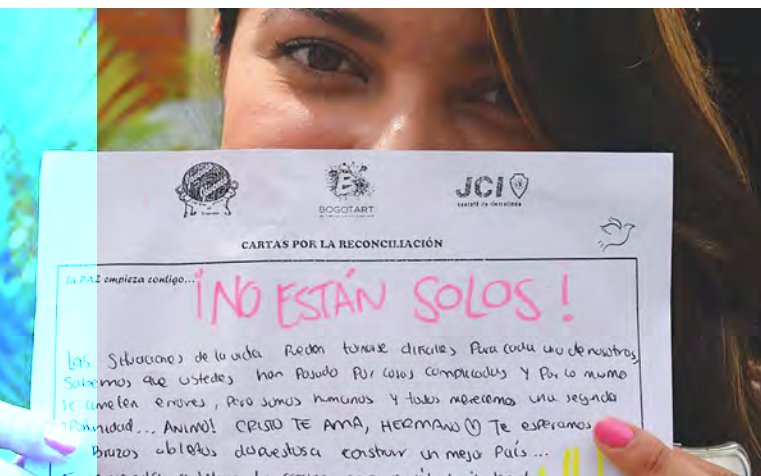 BOGOTART
JCI
CARTAS POR LA RECONCILIACIÓN
La PAZ empieza contigo...
¡NO ESTÁN SOLOS!
Las situaciones de la vida Pueden tornarse difíciles Para cada uno de nosotros,
Sabemos que ustedes han Pasado Por cosas complicadas Y Por lo mismo
se cometen errores, Pero somos humanos Y todos merecemos una segunda
... ANIMO! CRISTO TE AMA, HERMANO Te esperamos
Brazos abiertos construir un mejor País...